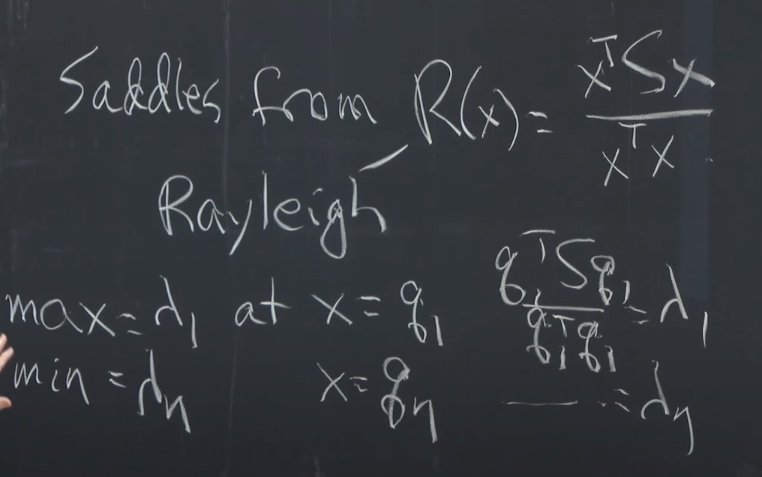 Saddles from R(x) = xᵀSx / xᵀx
Rayleigh
max = λ₁ at x = q₁ q₁ᵀSq₁ / q₁ᵀq₁ = λ₁
min = λₙ x = qₙ — = λₙ